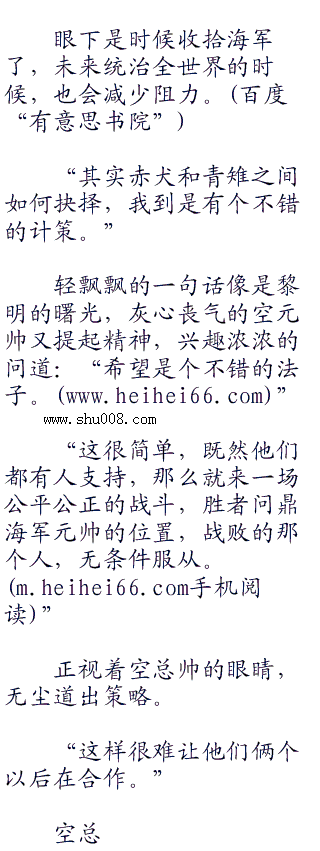 眼下是时候收拾海军
了，未来统治全世界的时
候，也会减少阻力。(百度
“有意思书院”)
“其实赤犬和青雉之间
如何抉择，我到是有个不错
的计策。”
轻飘飘的一句话像是黎
明的曙光，灰心丧气的空元
帅又提起精神，兴趣浓浓的
问道：“希望是个不错的法
子。(www.heihei66.com)”
www.shu008.com
“这很简单，既然他们
都有人支持，那么就来一场
公平公正的战斗，胜者问鼎
海军元帅的位置，战败的那
个人，无条件服从。
(m.heihei66.com手机阅
读)”
正视着空总帅的眼睛，
无尘道出策略。
“这样很难让他们俩个
以后在合作。”
空总